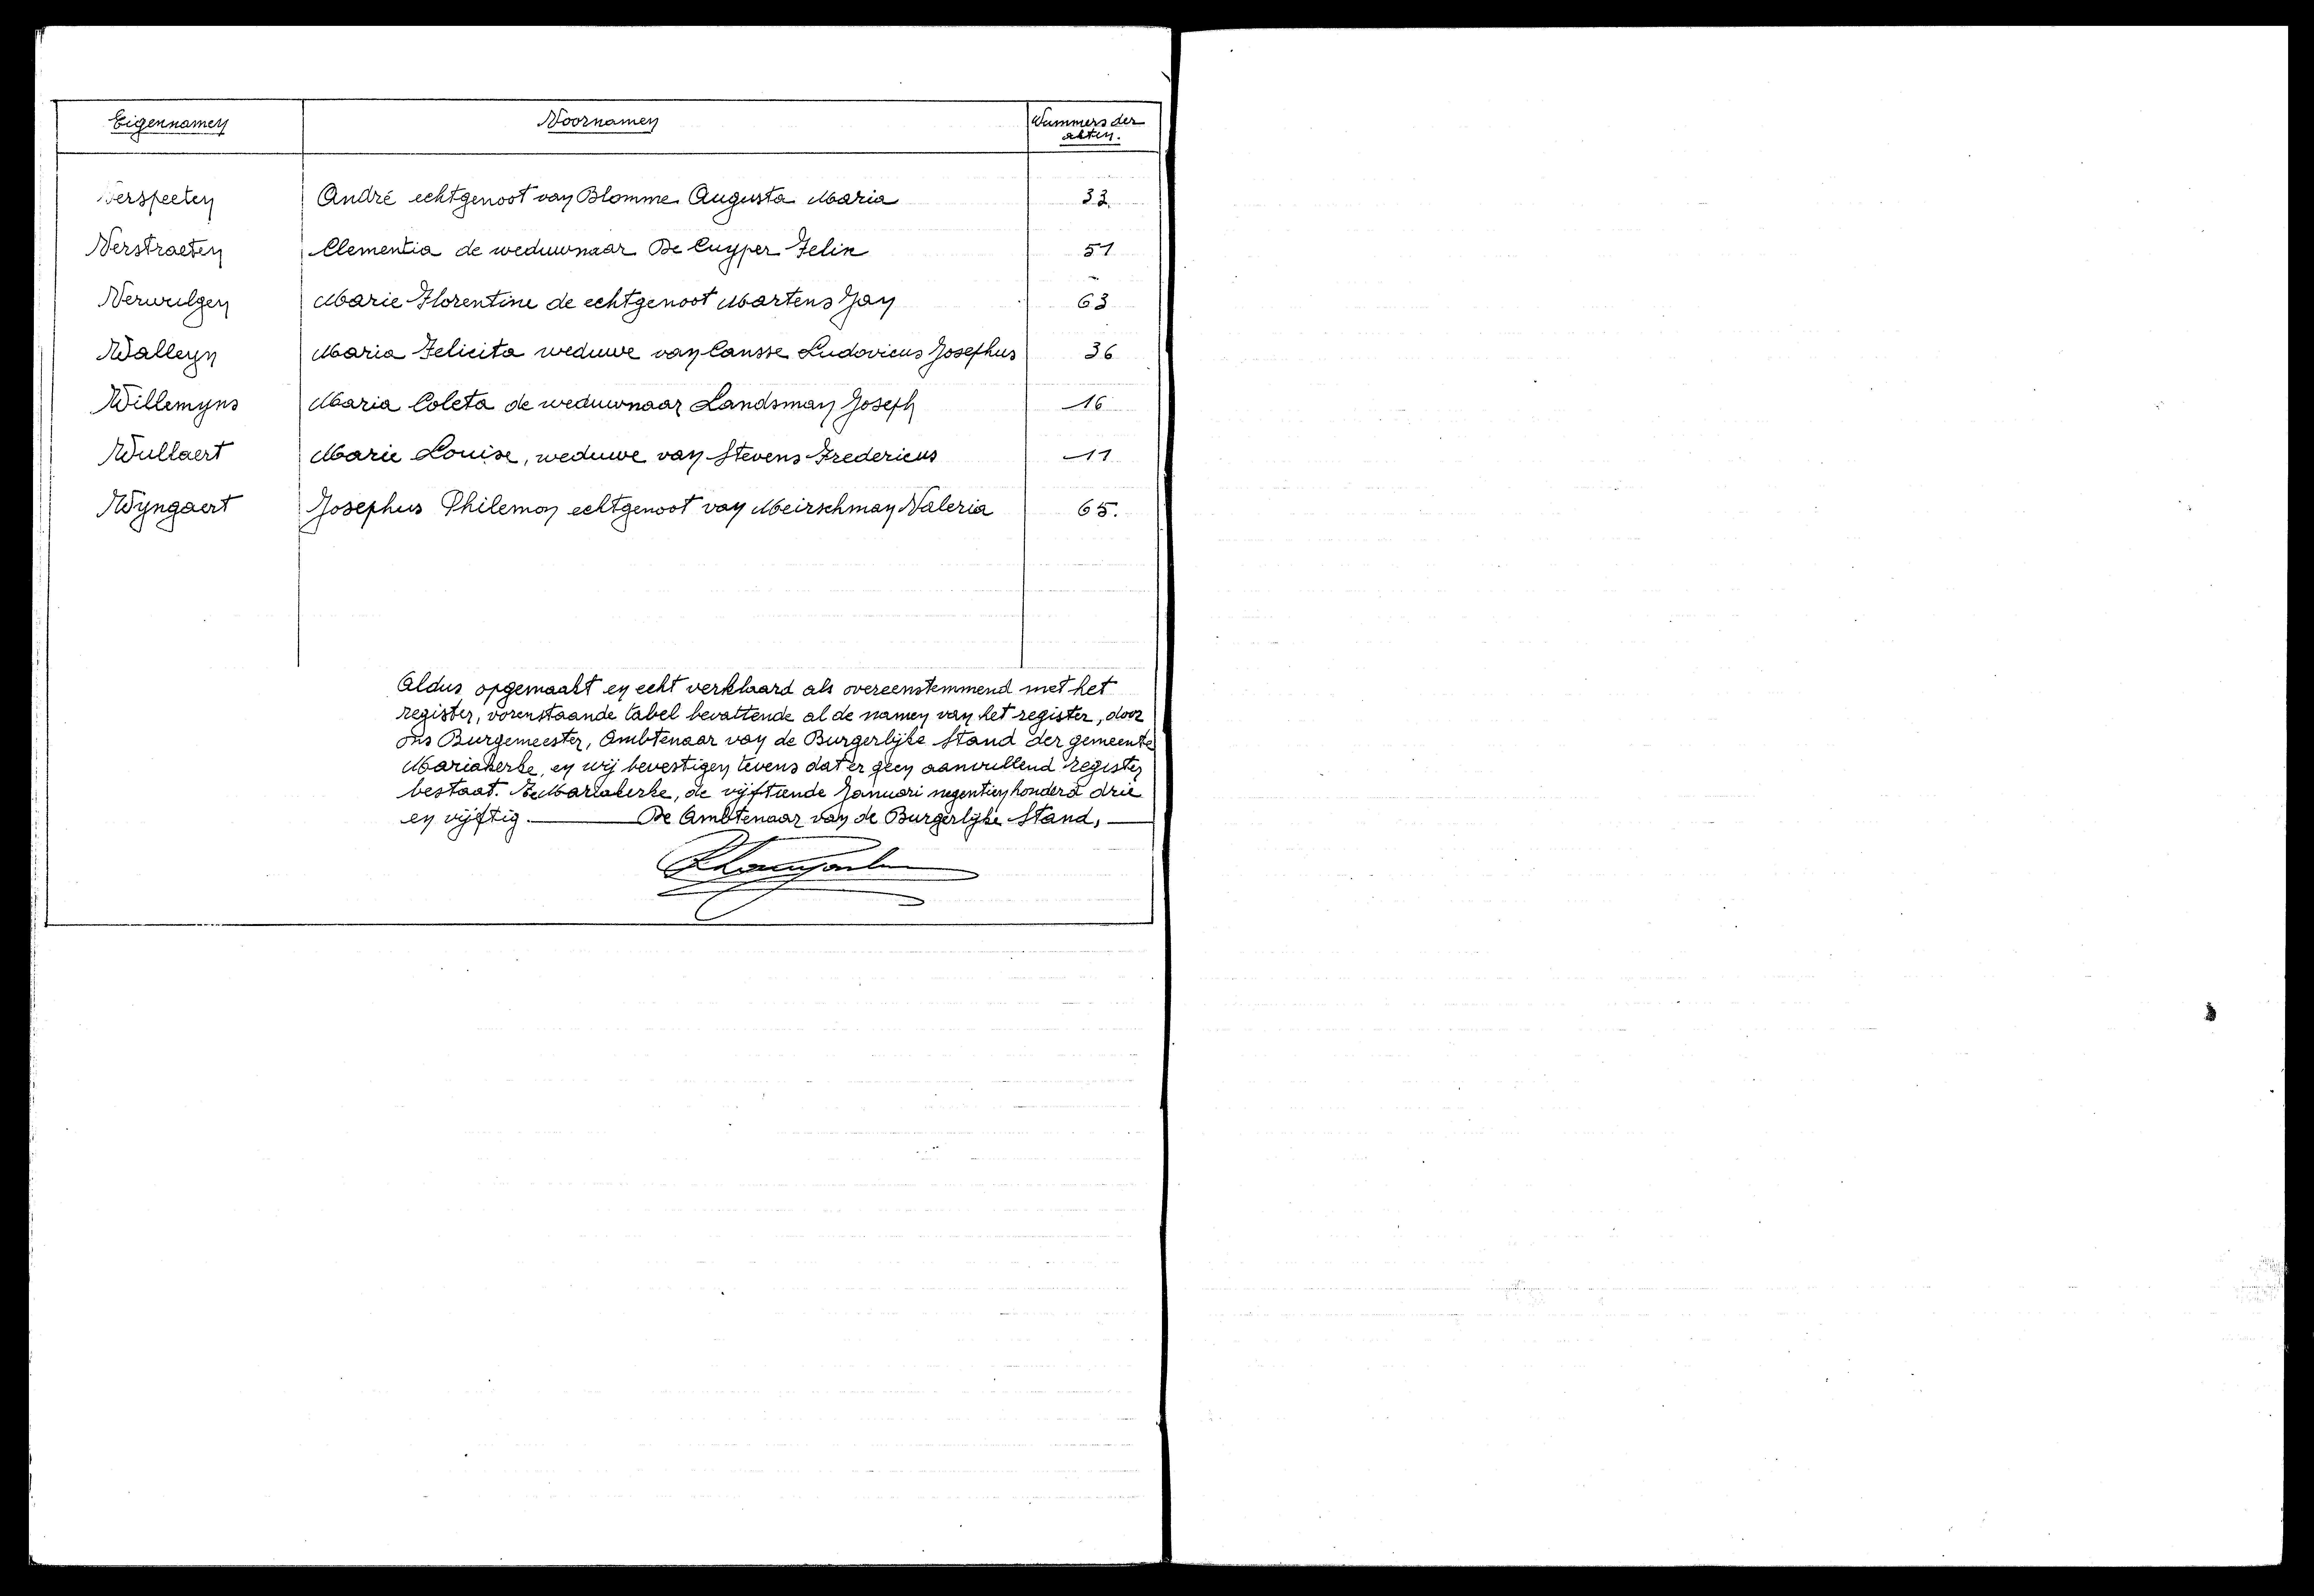 Eigennamen Voornamen Nummers der
akten.
Verspeeten André echtgenoot van Blomme Augusta Maria 33.
Verstraeten Clementia de weduwnaar De Cuyper Felix 51
Verwulgen Marie Florentine de echtgenoot Martens Jan 63
Walleyn Maria Felicita weduwe van Cansse Ludovicus Josephus 36
Willemyns Maria Coleta de weduwnaar Landsman Joseph 16
Wullaert Marie Louise, weduwe van Stevens Fredericus 11
Wyngaert Josephus Philemon echtgenoot van Meirschman Valeria 65.
Aldus opgemaakt en echt verklaard als overeenstemmend met het
register, vorenstaande tabel bevattende al de namen van het register, door
ons Burgemeester, Ambtenaar van de Burgerlijke Stand der gemeente
Mariakerke, en wij bevestigen tevens dat er geen aanvullend register
bestaat. Te Mariakerke, de vijftiende Januari negentienhonderd drie
en vijftig. De Ambtenaar van de Burgerlijke Stand,